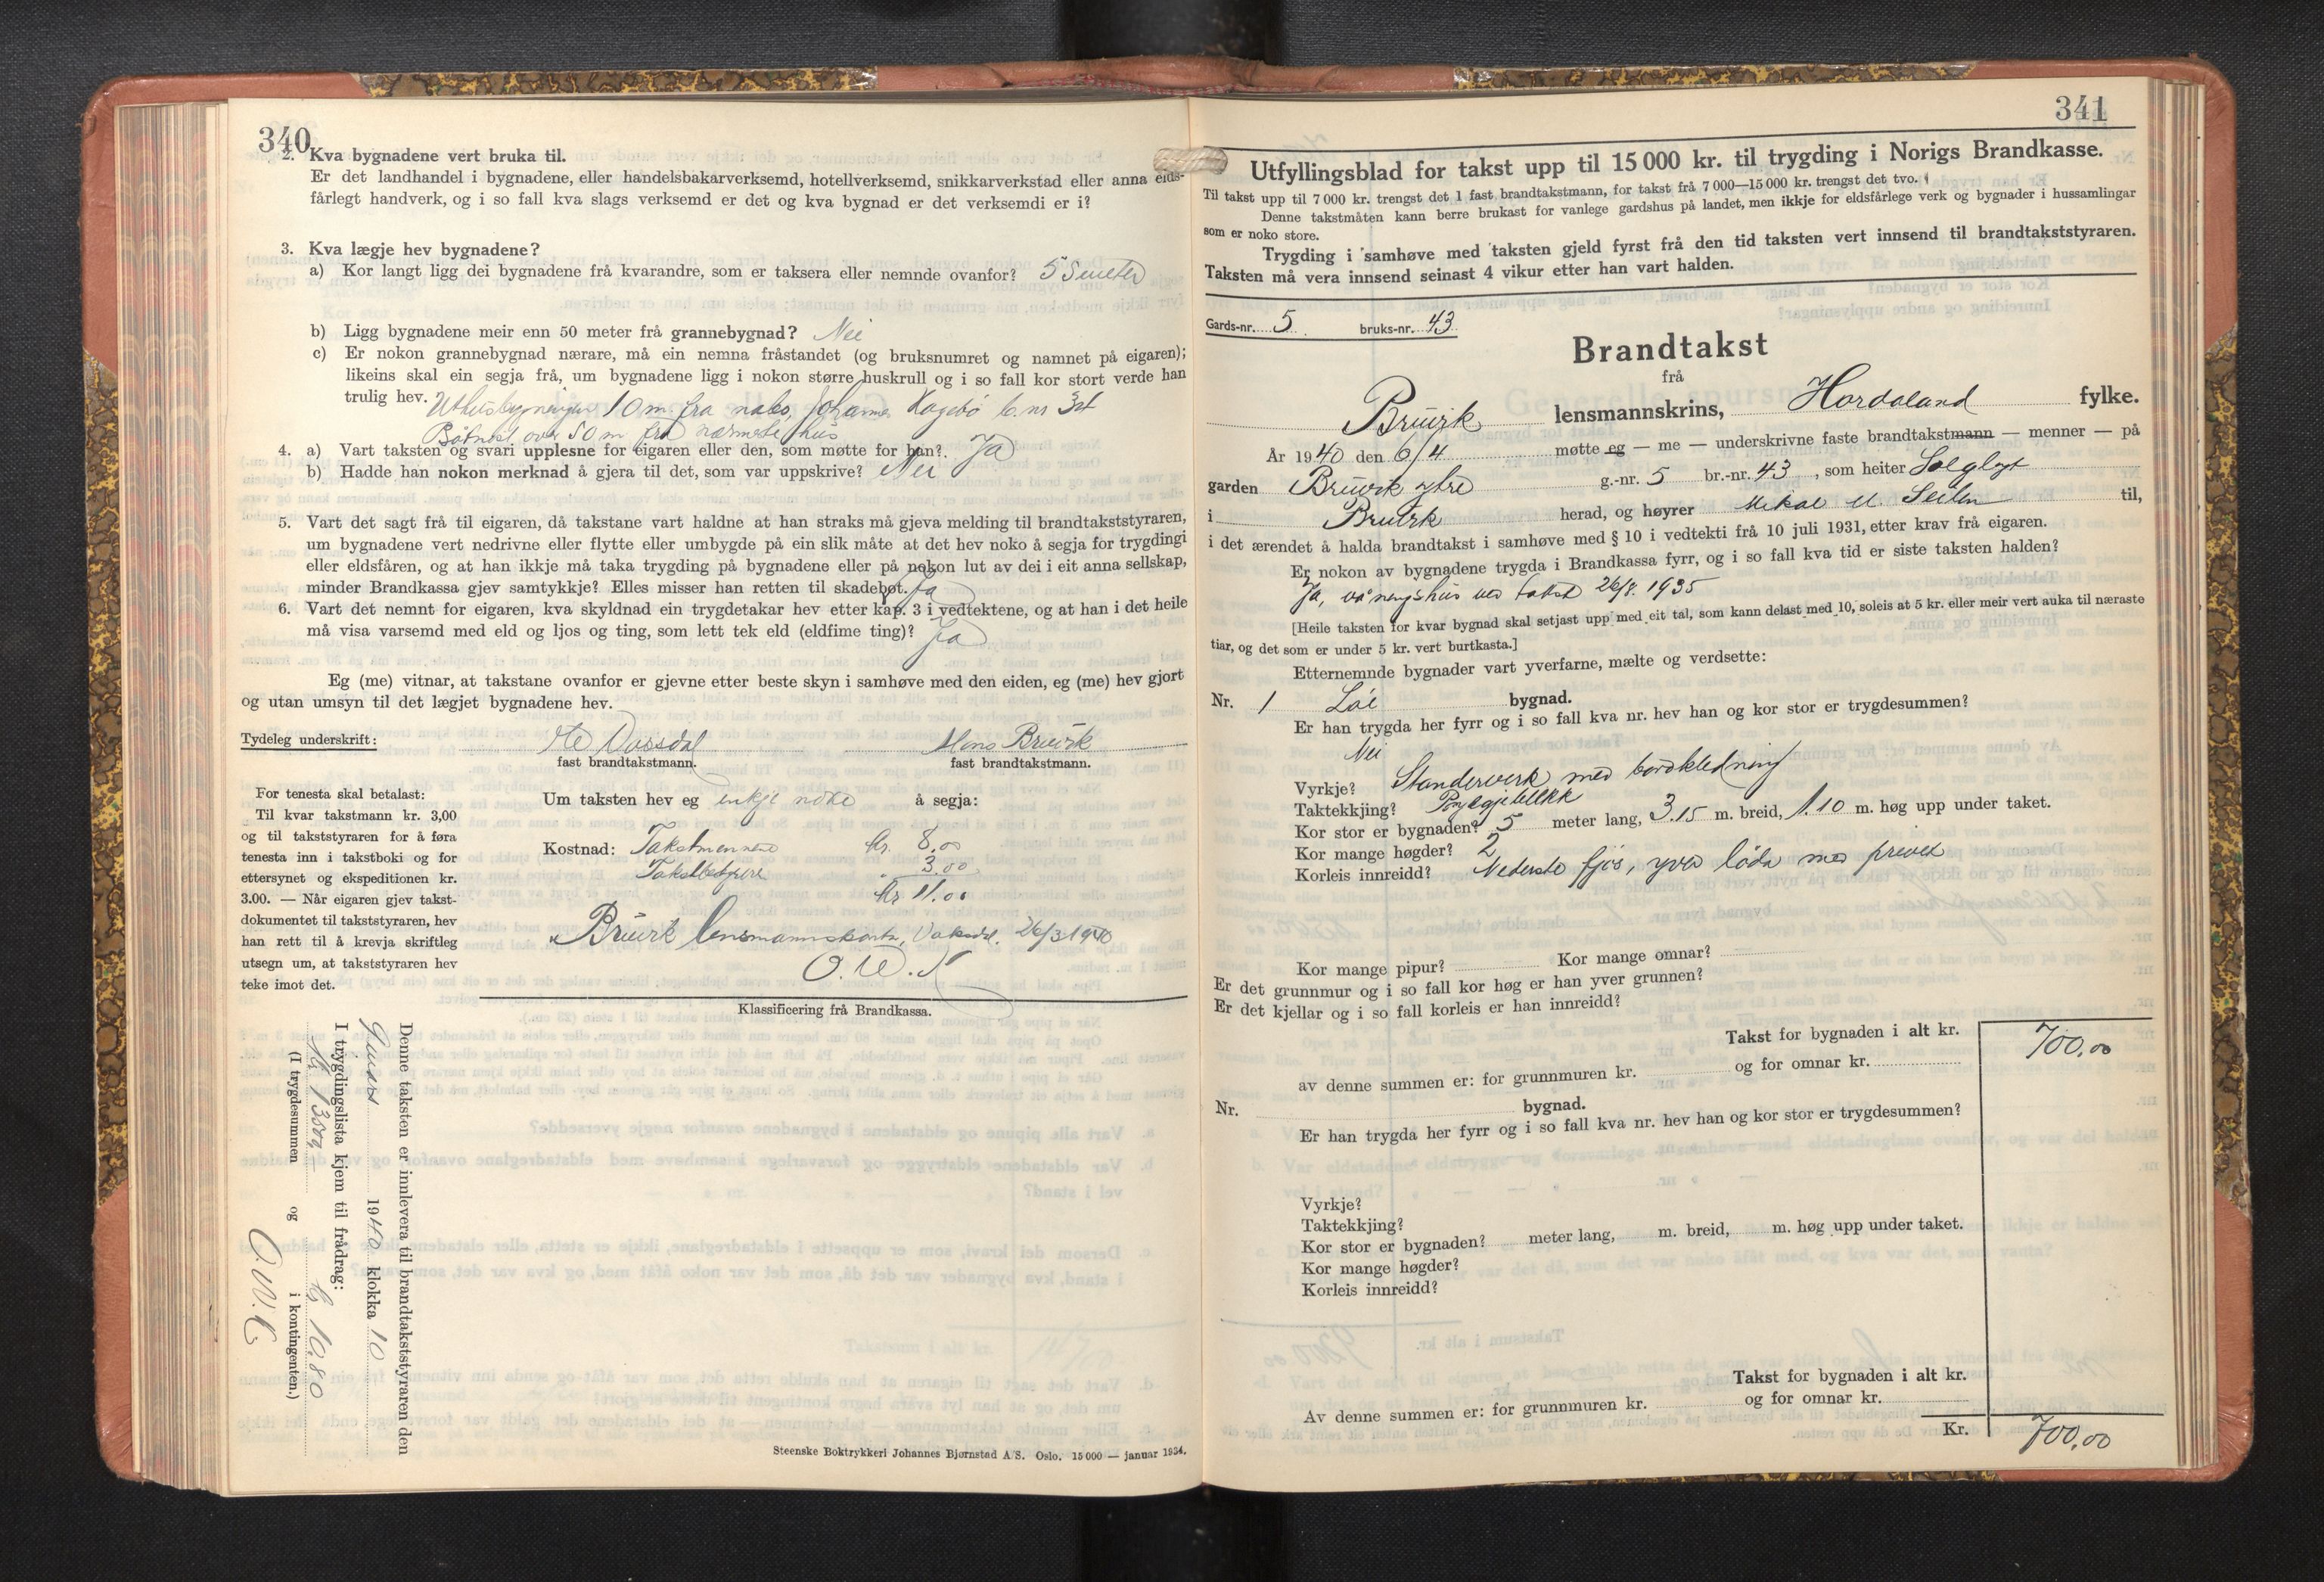 340
2. Kva bygnadene vert bruka til.
Er det landhandel i bygnadene, eller handelsbakarverksemd, hotellverksemd, snikkarverkstad eller anna elds-
fårlegt handverk, og i so fall kva slags verksemd er det og kva bygnad er det verksemdi er i?
3. Kva lægje hev bygnadene?
a) Kor langt ligg dei bygnadene frå kvarandre, som er taksera eller nemnde ovanfor? 55 meter
b) Ligg bygnadene meir enn 50 meter frå grannebygnad? Nei
c) Er nokon grannebygnad nærare, må ein nemna fråstandet (og bruksnumret og namnet på eigaren);
likeins skal ein segja frå, um bygnadene ligg i nokon større huskrull og i so fall kor stort verde han
trulig hev. Uthusbygningen 10 m. fra nabo, Johannes b. nr
over 50 m fra nærmeste hus
4. a) Vart taksten og svari upplesne for eigaren eller den, som møtte for han? Ja
b) Hadde han nokon merknad å gjera til det, som var uppskrive? Nei
5. Vart det sagt frå til eigaren, då takstane vart haldne at han straks må gjeva melding til brandtakststyraren,
um bygnadene vert nedrivne eller flytte eller umbygde på ein slik måte at det hev noko å segja for trygdingi
eller eldsfåren, og at han ikkje må taka trygding på bygnadene eller på nokon lut av dei i eit anna sellskap,
minder Brandkassa gjev samtykkje? Elles misser han retten til skadebøt. Ja
6. Vart det nemnt for eigaren, kva skyldnad ein trygdetakar hev etter kap. 3 i vedtektene, og at han i det heile
må visa varsemd med eld og ljos og ting, som lett tek eld (eldfime ting)? Ja
Eg (me) vitnar, at takstane ovanfor er gjevne etter beste skyn i samhøve med den eiden, eg (me) hev gjort
og utan umsyn til det lægjet bygnadene hev.
Tydeleg underskrift: Mons Bruvik
fast brandtakstmann. fast brandtakstmann.
For tenesta skal betalast:
Til kvar takstmann kr. 3,00
og til takststyraren for å føra
tenesta inn i takstboki og for
ettersynet og ekspeditionen kr.
3.00. — Når eigaren gjev takst-
dokumentet til takststyraren, hev
han rett til å krevja skriftleg
utsegn um, at takststyraren hev
teke imot det.
Um taksten hev eg inkje noko å segja:
Kostnad: Takstmennene kr. 8,00
3,00
kr 11.00
Bruvik lensmannskontor, Vaksdal, 26/3 1940
Klassificering frå Brandkassa.
Denne taksten er innlevera til brandtakststyraren den
1940 klokka 10
I trygdingslista kjem til frådrag:
kr 10,80
(I trygdesummen og i kontingenten.)
Steenske Boktrykkeri Johannes Bjørnstad A/S. Oslo. 15 000 — januar 1934.
341
Utfyllingsblad for takst upp til 15 000 kr. til trygding i Norigs Brandkasse.
Til takst upp til 7 000 kr. trengst det 1 fast brandtakstmann, for takst frå 7 000—15 000 kr. trengst det tvo.
Denne takstmåten kann berre brukast for vanlege gardshus på landet, men ikkje for eldsfårlege verk og bygnader i hussamlingar
som er noko store.
Trygding i samhøve med taksten gjeld fyrst frå den tid taksten vert innsend til brandtakststyraren.
Taksten må vera innsend seinast 4 vikur etter han vart halden.
Gards-nr. 5 bruks-nr. 43
Brandtakst
frå
Bruvik lensmannskrins, Hordaland fylke.
År 1940 den 6/4 møtte eg — me — underskrivne faste brandtakstmann — menner — på
garden Bruvik ytre g.-nr. 5 br.-nr. 43, som heiter Solgløtt
i Bruvik herad, og høyrer Mikal M. til,
i det ærendet å halda brandtakst i samhøve med § 10 i vedtekti frå 10 juli 1931, etter krav frå eigaren.
Er nokon av bygnadene trygda i Brandkassa fyrr, og i so fall kva tid er siste taksten halden?
Ja, våningshus ved takst 26/8. 1935
[Heile taksten for kvar bygnad skal setjast upp med eit tal, som kann delast med 10, soleis at 5 kr. eller meir vert auka til næraste
tiar, og det som er under 5 kr. vert burtkasta.]
Etternemnde bygnader vart yverfarne, mælte og verdsette:
Nr. 1 Løe bygnad.
Er han trygda her fyrr og i so fall kva nr. hev han og kor stor er trygdesummen?
Nei
Vyrkje? Standerverk med bordkledning
Taktekkjing?
Kor stor er bygnaden? 5 meter lang, 3.15 m. breid, 1.10 m. høg upp under taket.
Kor mange høgder? 2
Korleis innreidd? Nederste fjøs, yver løda med
Kor mange pipur? Kor mange omnar?
Er det grunnmur og i so fall kor høg er han yver grunnen?
Er det kjellar og i so fall korleis er han innreidd?
Takst for bygnaden i alt kr. 700,00
av denne summen er: for grunnmuren kr. og for omnar kr.
Nr. bygnad.
Er han trygda her fyrr og i so fall kva nr. hev han og kor stor er trygdesummen?
Vyrkje?
Taktekkjing?
Kor stor er bygnaden? meter lang, m. breid, m. høg upp under taket.
Kor mange høgder?
Korleis innreidd?
Takst for bygnaden i alt kr.
Av denne summen er: for grunnmuren kr. og for omnar kr.
Kr. 700,00